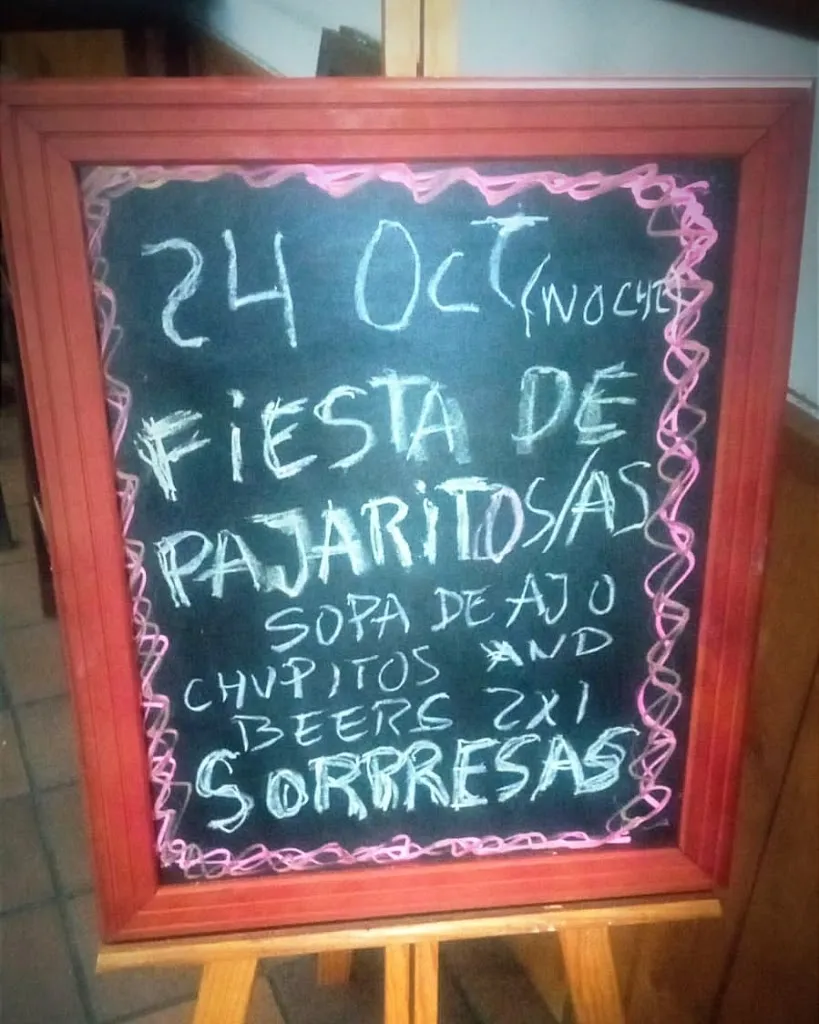 24 OCT (NOCHE)
FiESTA DE
PAJARiTOS/AS
SOPA DE AJO
CHUPITOS AND
BEERS 2X1
SORPRESAS